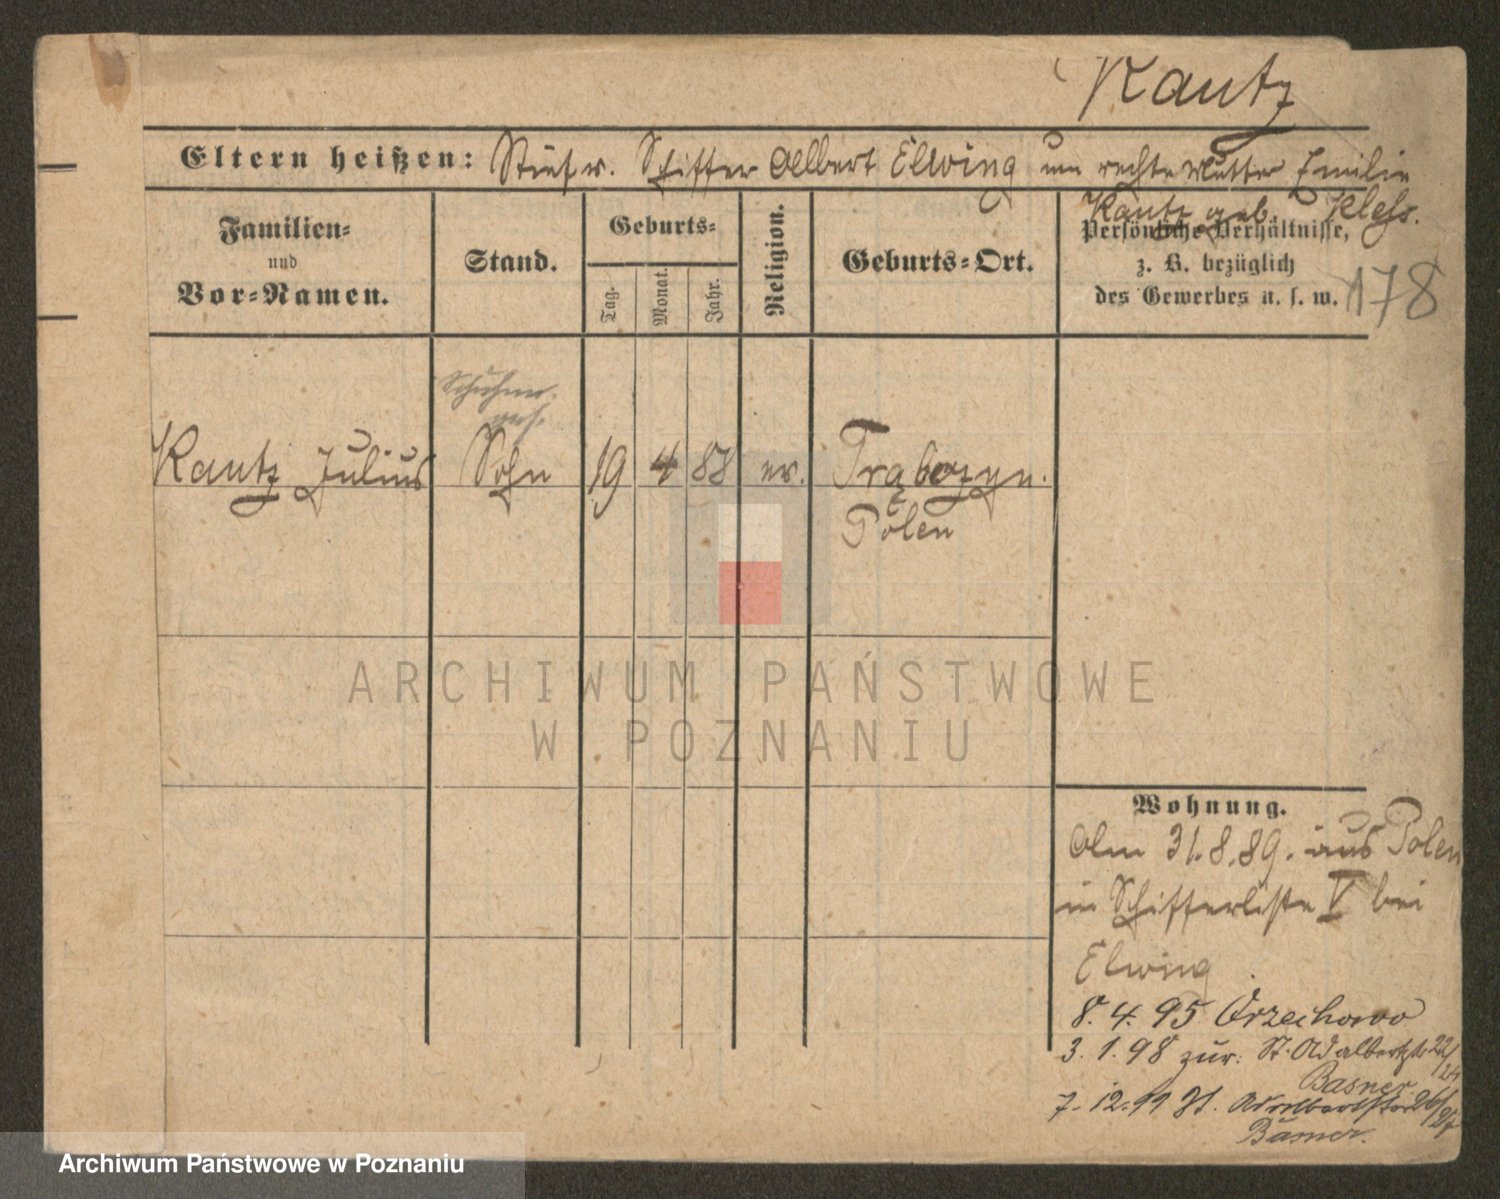 Kautz
Eltern heißen: Stiefv. Schiffer Albert Elwing rechte Mutter Emilie
Kautz geb.
Familien=
und
Vor=Namen.
Stand.
Geburts=
Tag.
Monat.
Jahr.
Religion.
Geburts=Ort.
Persönliche Verhältnisse,
z. B. bezüglich
des Gewerbes u. s. w.
178
Schuhm.
ges.
Kautz Julius Sohn 19 4 88 ev.
Polen
ARCHIWUM PAŃSTWOWE
W POZNANIU
Wohnung.
Am 31.8.89. aus Polen
in Schifferliste V bei
Elwing
8. 4. 95 Orzechowo
3. 1. 98 zur: St. Adalbertstr 22/24
Basner
7. 12. 99 St. Adalbertstr 26/27
Basner.
Archiwum Państwowe w Poznaniu